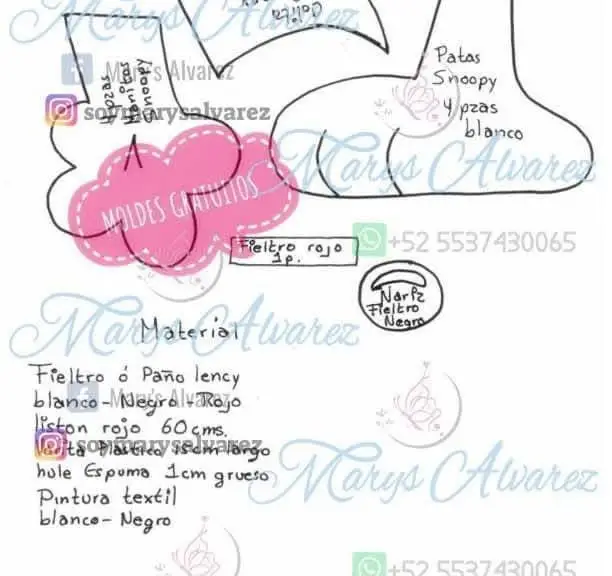 Marys Alvarez
Patas
Snoopy
4 pzas
blanco
Mary's Alvarez
soymarysalvarez
Snoopy
4 pzas
MOLDES GRATUITOS
Marys Alvarez
Fieltro rojo
1p.
+52 5537430065
Nariz
Fieltro
Negro
Marys Alvarez
Material
Fieltro ó Paño lency
blanco-Negro-Rojo
Mary's Alvarez
liston rojo 60cms.
soymarysalvarez
Plastico 15cm largo
hule Espuma 1cm grueso
Pintura textil
blanco-Negro
Marys Alvarez
+52 5537430065